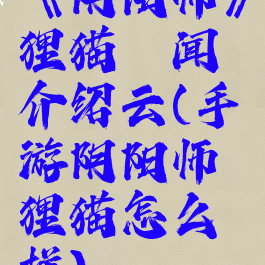 《阴阳师》
狸猫 闻
介绍云(手
游阴阳师
狸猫怎么
样)